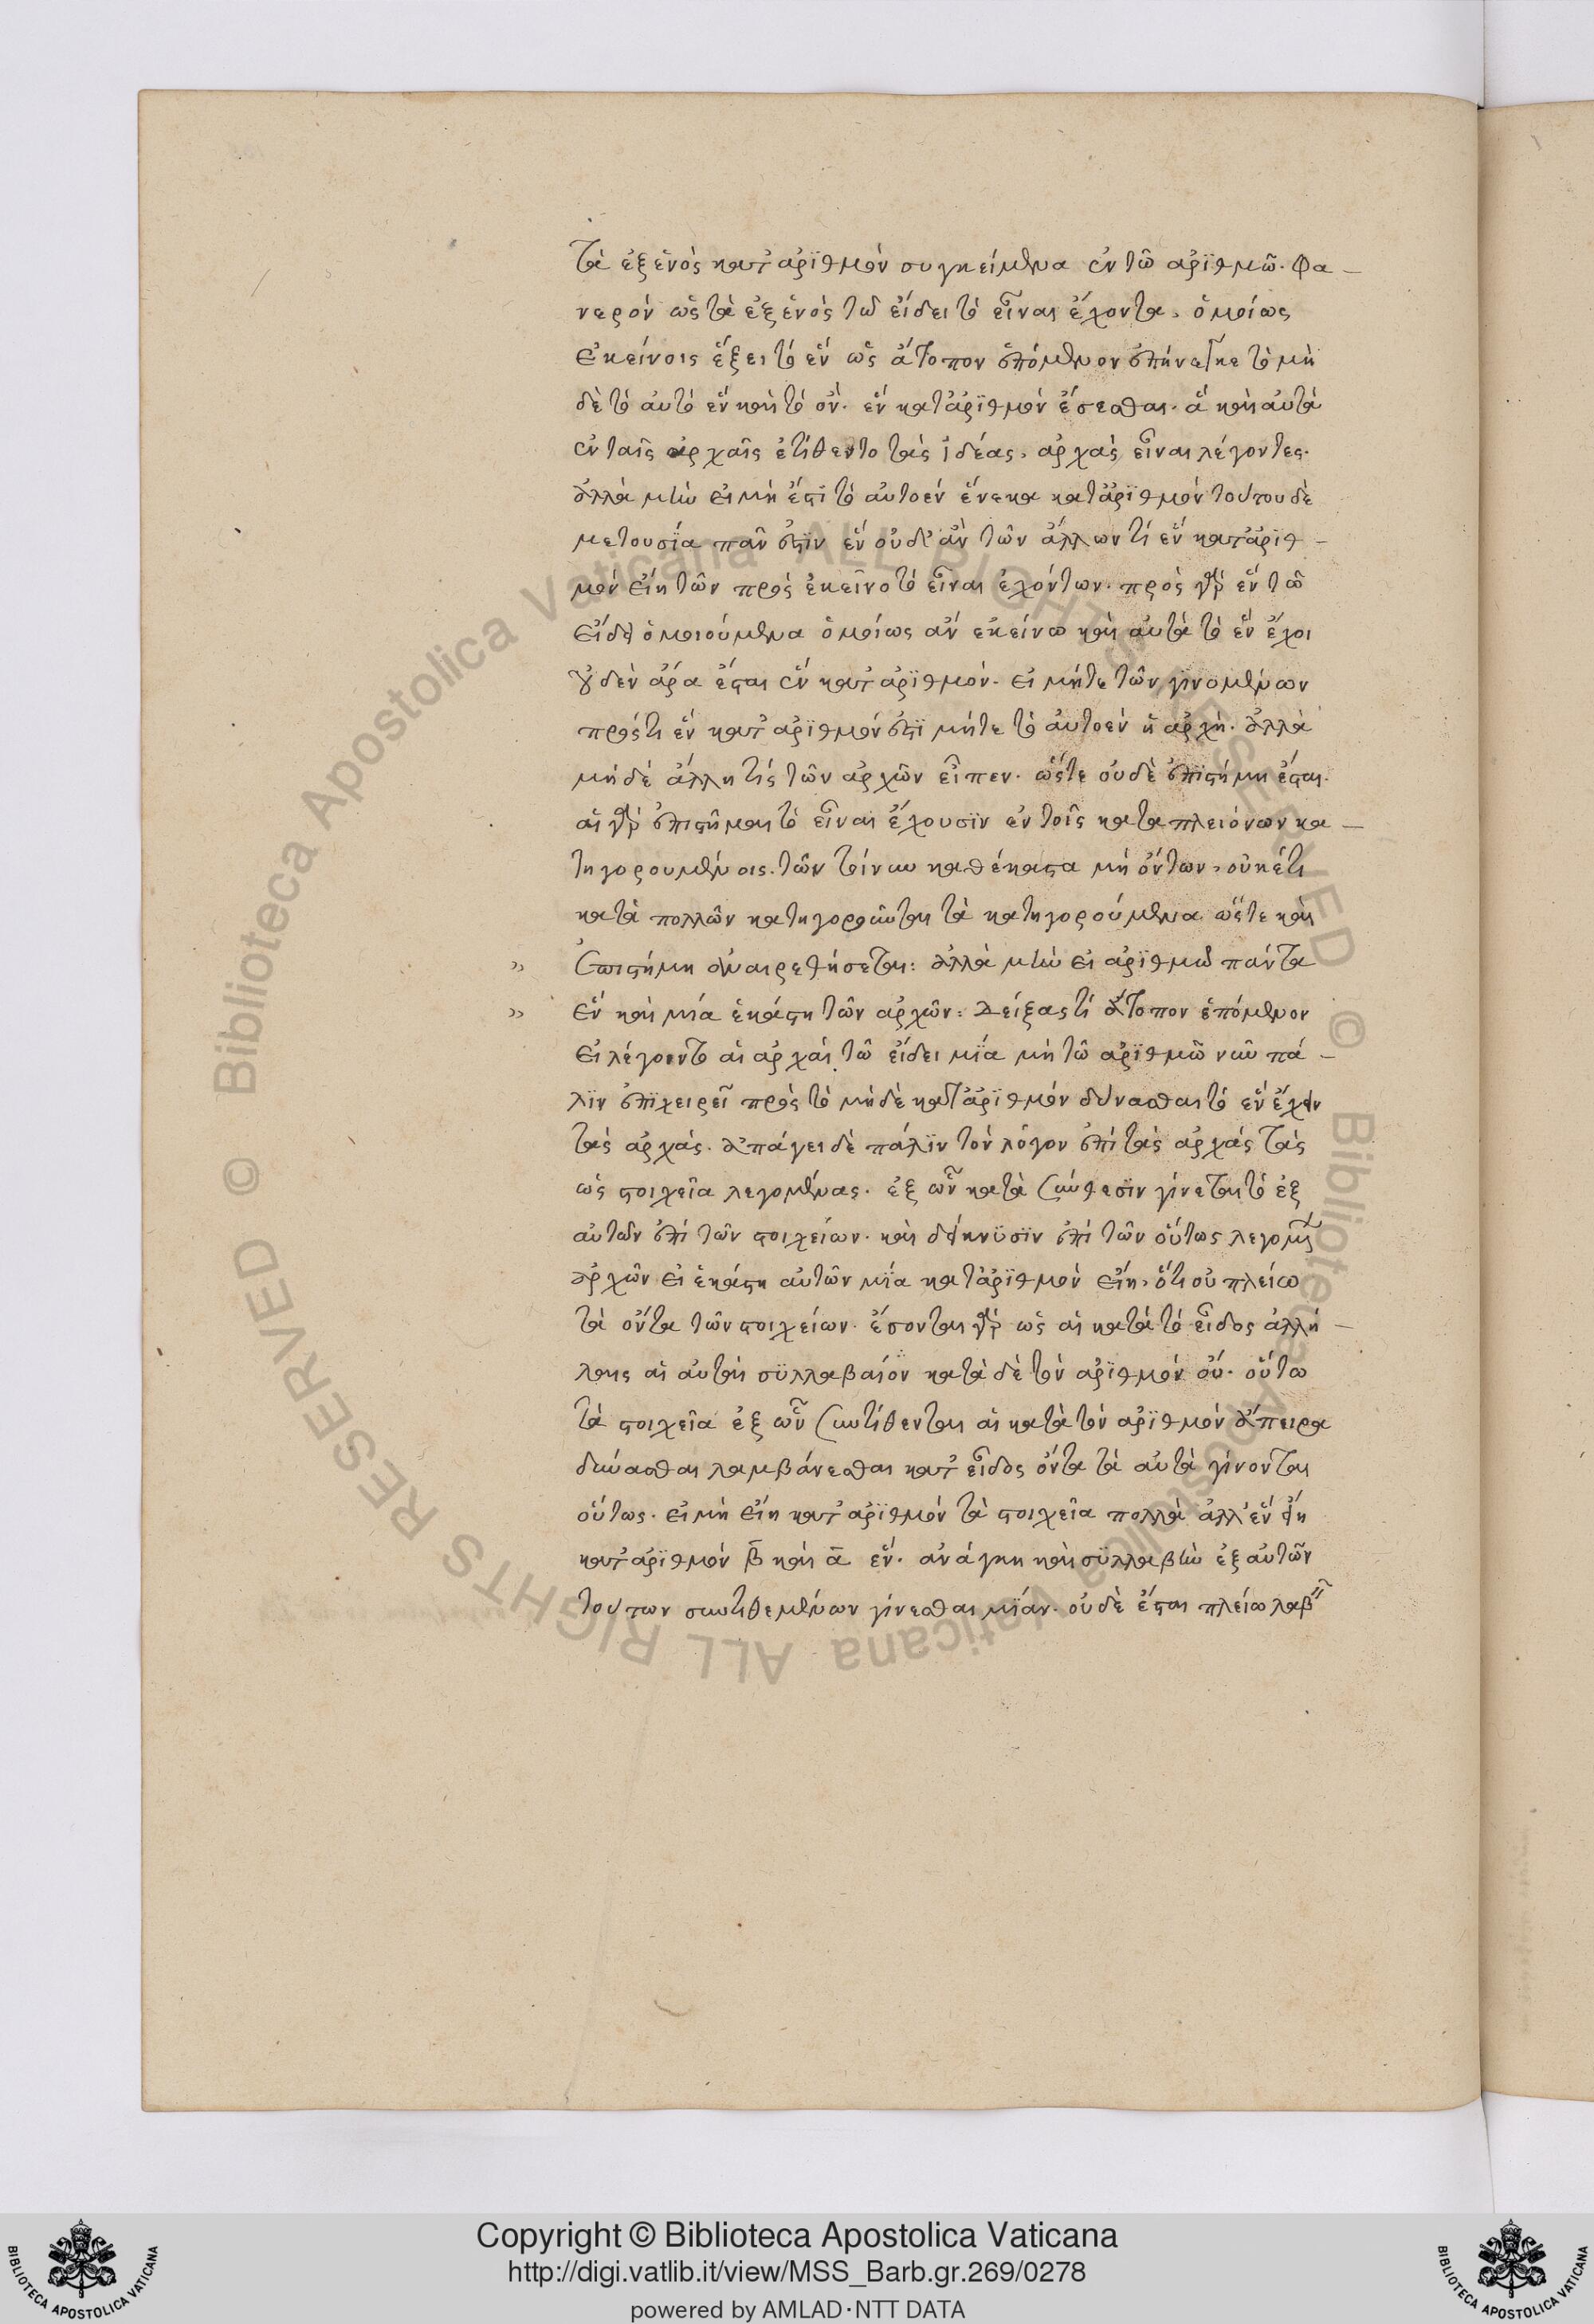 τὰ ἐξ ἑνὸς κατ' ἀρϊθμὸν συγκείμενα ἐν τῶ ἀρϊθμῶ. φα-
νερὸν ὡς τὰ ἐξ ἑνὸς τῶ εἴδει τὸ εἶναι ἔχοντα, ὁμοίως
ἐκείνοις ἕξει τὸ ἓν ὡς ἄτοπον ἑπόμενον ἐπήνεγκε τὸ μη
δὲ τὸ αὐτὸ ἓν καὶ τὸ ὂν. ἓν κατ' ἀρϊθμὸν ἔσεσθαι. ἃ καὶ αὐτὰ
ἐν ταῖς ἀρχαῖς ἐτίθεντο τὰς ἰδέας, ἀρχὰς εἶναι λέγοντες.
ἀλλὰ μὴν εἰ μὴ ἔστϊ τὸ αὐτοὲν ἕνεκα κατ' ἀρϊθμὸν τούτου δὲ
μετουσία πᾶν ἐστϊν ἓν οὐδ' ἂν τῶν ἄλλων τί ἓν κατ' ἀριθ-
μὸν εἴη τῶν πρὸς ἐκεῖνο τὸ εἶναι ἐχόντων. πρὸς γὰρ ἓν τῶ
εἴδει ὁμοιούμενα ὁμοίως ἂν ἐκείνω καὶ αὐτὰ τὸ ἓν ἔχοι
οὐδὲν ἄρα ἔσται ἓν κατ' ἀρϊθμόν. εἰ μήτε τῶν γινομένων
πρός τι ἓν κατ' ἀρϊθμόν ἐστϊ μήτε τὸ αὐτοὲν ἡ ἀρχὴ. ἀλλὰ
μὴδὲ ἄλλη τίς τῶν ἀρχῶν εἶπεν. ὥστε οὐδὲ ἐπϊστήμη ἔσται.
αἱ γὰρ ἐπιστῆμαι τὸ εἶναι ἔχουσϊν ἐν τοῖς κατα πλειόνων κα-
τηγορουμένοις. τῶν τοίνυν καθέκαστα μὴ ὄντων, οὐκέτι
κατὰ πολλῶν κατηγοροῦνται τὰ κατηγορούμενα. ὥστε καὶ
» ἐπιστήμη ἀναιρεθήσεται: ἀλλὰ μὴν εἰ ἀρϊθμῶ πάντα
» ἓν καὶ μία ἑκάστη τῶν ἀρχῶν: Δείξας τί ἄτοπον ἑπόμενον
εἰ λέγοιντο αἱ ἀρχαὶ τῶ εἴδει μϊά μὴ τῶ ἀρϊθμῶ νῦν πά-
λϊν ἐπϊχειρεῖ πρὸς τὸ μὴδὲ κατ' ἀρϊθμὸν δύνασθαι τὸ ἓν ἔχειν
τὰς ἀρχὰς. ἀπάγει δὲ πάλϊν τὸν λόγον ἐπὶ τὰς ἀρχὰς τὰς
ὡς στοιχεῖα λεγομένας. ἐξ ὧν κατὰ σύνθεσϊν γίνεται τὸ ἐξ
αὐτῶν ἐπὶ τῶν στοιχείων. καὶ δείκνϋσϊν ἐπὶ τῶν οὕτως λεγομένων
ἀρχῶν εἰ ἑκάστη αὐτῶν μϊά κατ' ἀρϊθμὸν εἴη, ὅτι οὐ πλείω
τὰ ὄντα τῶν στοιχείων. ἔσονται γὰρ ὡς αἱ κατὰ τὸ εἶδος ἀλλή-
λαις αἱ αὐταὶ σϋλλαβαὶ κατὰ δὲ τὸν ἀρϊθμὸν οὔ. οὕτω
τὰ στοιχεῖα ἐξ ὧν συντίθενται αἱ κατὰ τὸν ἀρϊθμὸν ἄπειρα
δύνασθαι λαμβάνεσθαι κατ' εἶδος ὄντα τὰ αὐτὰ γίνονται
οὕτως. εἰ μὴ εἴη κατ' ἀρϊθμὸν τὰ στοιχεῖα πολλὰ ἀλλ' ἓν εἴη
κατ' ἀρϊθμὸν β καὶ α ἓν. ἀνάγκη καὶ σϋλλαβὴν ἐξ αὐτῶν
τούτων συντιθεμένων γίνεσθαι μϊάν. οὐδὲ ἔσται πλείω λαβεῖν
Copyright © Biblioteca Apostolica Vaticana
http://digi.vatlib.it/view/MSS_Barb.gr.269/0278
powered by AMLAD·NTT DATA
© Biblioteca Apostolica Vaticana ALL RIGHTS RESERVED
© Biblioteca Apostolica Vaticana ALL RIGHTS RESERVED
BIBLIOTECA APOSTOLICA VATICANA
BIBLIOTECA APOSTOLICA VATICANA